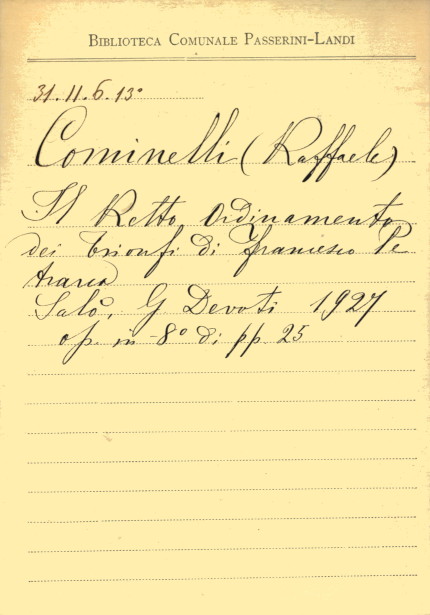 BIBLIOTECA COMUNALE PASSERINI-LANDI
31.II.6.13°
Cominelli (Raffaele)
Il Retto Ordinamento
dei Trionfi di Francesco Pe
trarca
Salò, G Devoti 1927
op. in -8° di pp. 25